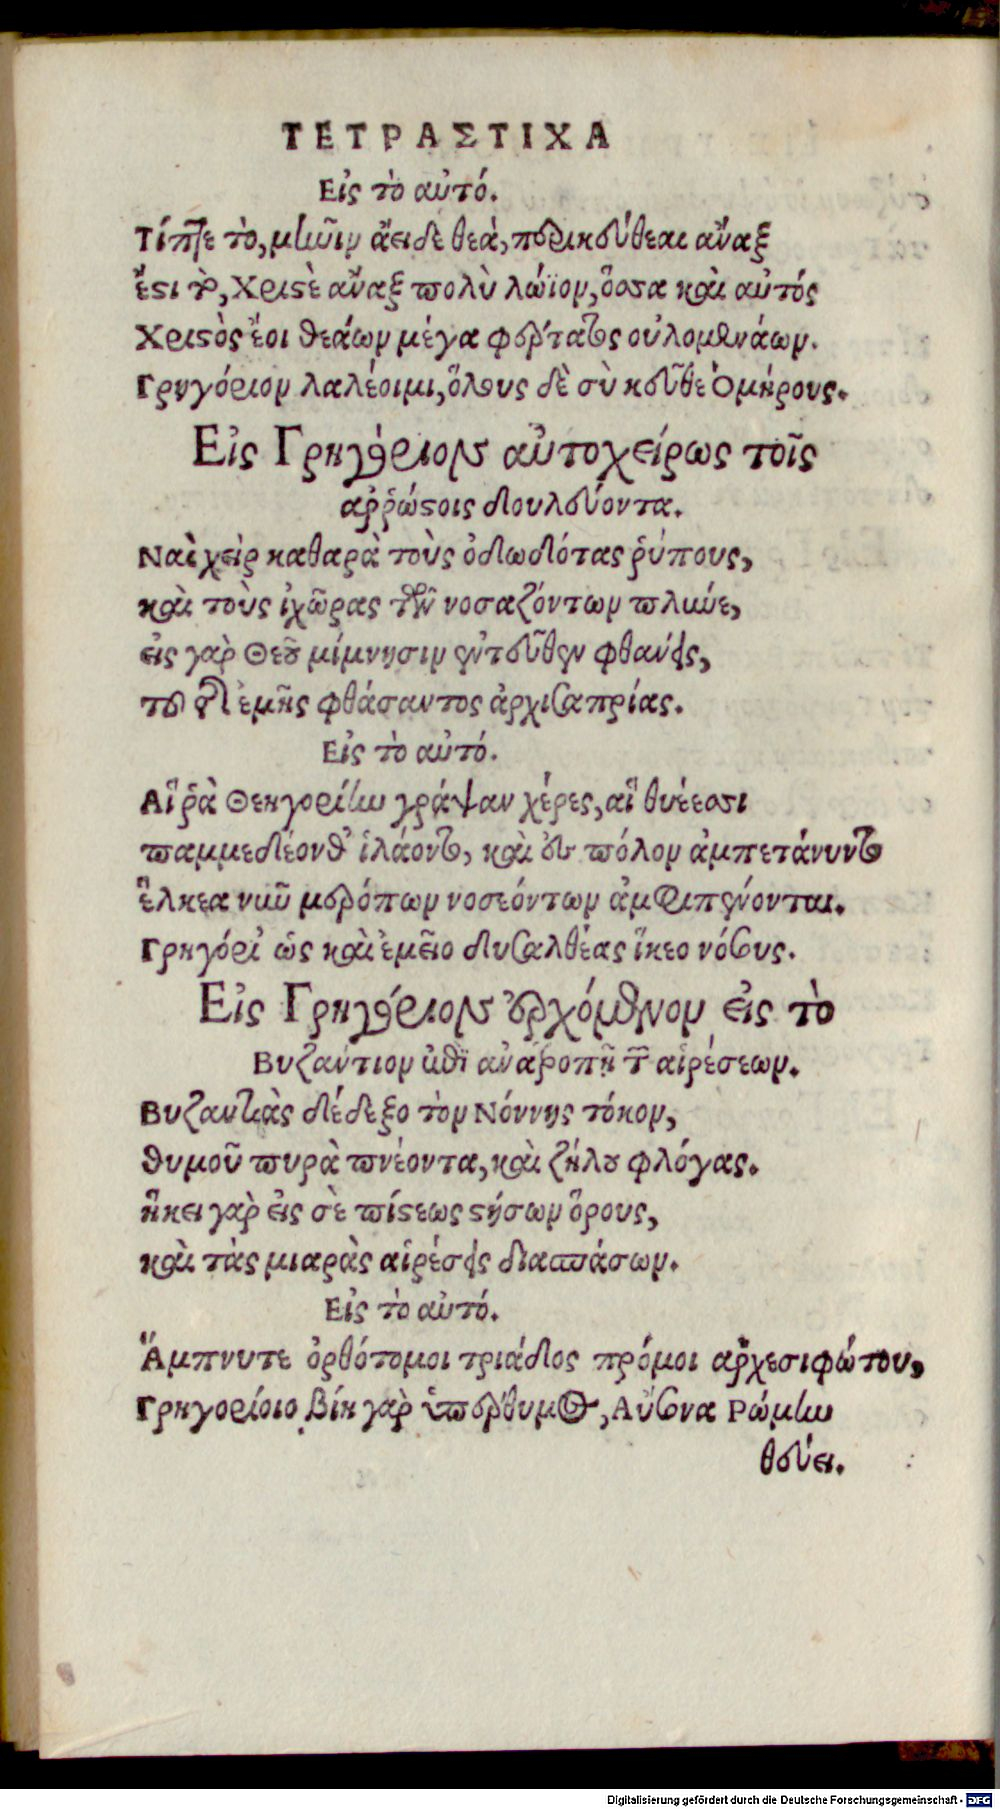 ΤΕΤΡΑΣΤΙΧΑ
Εἰς τὸ αὐτό.
Τίπτε τὸ, μῆνιν ἄειδε θεὰ, περικεύθεαι ἄναξ
ἔστι τὸ, Χριστὲ ἄναξ πολὺ λώϊον, ὅσσα καὶ αὐτός
Χριστὸς ἔοι θεάων μέγα φέρτατος οὐλομενάων.
Γρηγόριον λαλέοιμι, ὅλους δὲ σὺ κεῦθε Ὁμήρους.
Εἰς Γρηγόριον αὐτοχείρως τοῖς
ἀῤῥώστοις δουλεύοντα.
Ναὶ χεὶρ καθαρὰ τοὺς ὀδωδότας ῥύπους,
καὶ τοὺς ἰχῶρας τῶν νοσαζόντων πλύνε,
εἰς γὰρ Θεοῦ μίμνησιν ἐντεῦθεν φθάνεις,
τοῦ τῆς ἐμῆς φθάσαντος ἀρχισαπρίας.
Εἰς τὸ αὐτό.
Αἵ ῥὰ Θεηγορίην γράψαν χέρες, αἵ θυέεσσι
παμμεδέονθ' ἱλάοντο, καὶ ἐς πόλον ἀμπετάνυντο
ἕλκεα νῦν μερόπων νοσεόντων ἀμφιπένονται.
Γρηγόρι' ὡς καὶ ἐμεῖο δυσαλθέας ἵκεο νόσους.
Εἰς Γρηγόριον ἐρχόμενον εἰς τὸ
Βυζάντιον ἐπὶ ἀνατροπῇ τῶν αἱρέσεων.
Βυζαντιὰς δέδεξο τὸν Νόννης τόκον,
θυμοῦ πυρὰ πνέοντα, καὶ ζήλου φλόγας.
ἥκει γὰρ εἰς σὲ πίστεως στήσων ὅρους,
καὶ τὰς μιαρὰς αἱρέσεις διασπάσων.
Εἰς τὸ αὐτό.
Ἄμπνυτε ὀρθότομοι τριάδος πρόμοι ἀρχεσιφώτου,
Γρηγορίοιο βίη γὰρ ὑπέρθυμος, Αὔσονα Ῥώμην
θεύει.
Digitalisierung gefördert durch die Deutsche Forschungsgemeinschaft - DFG